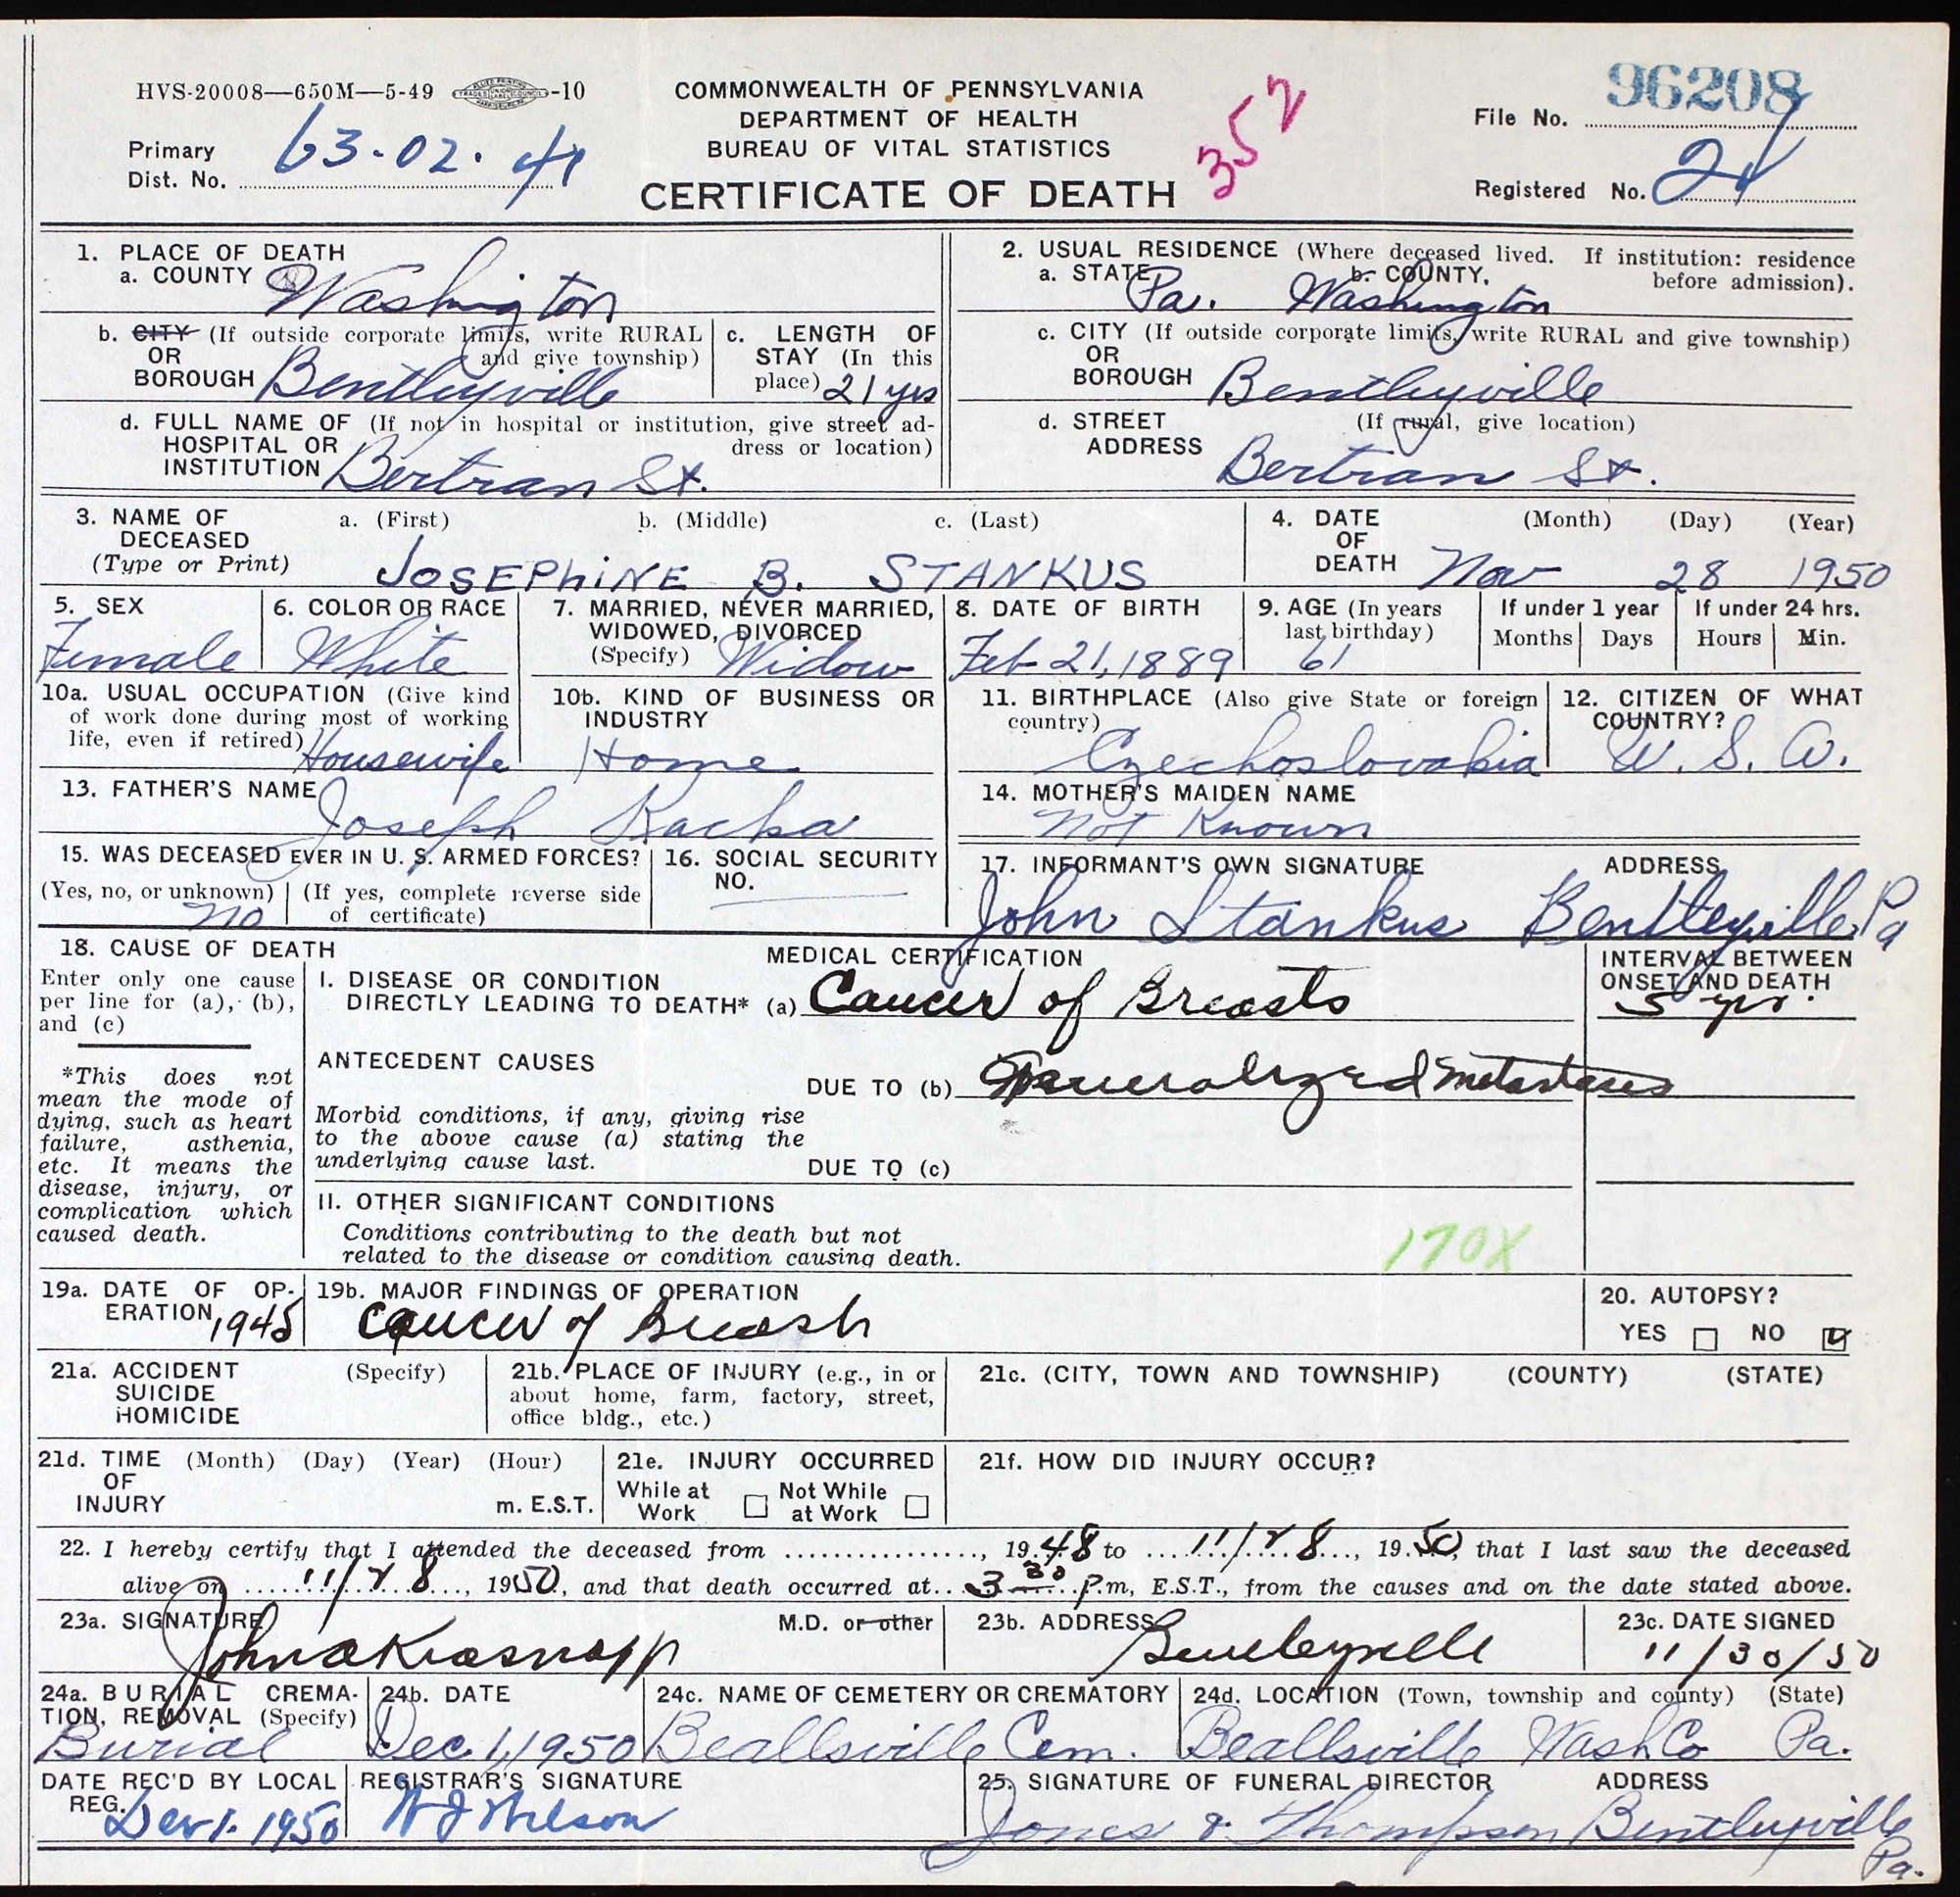 HVS-20008—650M—5-49 -10
COMMONWEALTH OF PENNSYLVANIA
DEPARTMENT OF HEALTH
BUREAU OF VITAL STATISTICS
CERTIFICATE OF DEATH
352
File No. 96208
Primary
Dist. No. 63-02-41
Registered No. 21
1. PLACE OF DEATH
a. COUNTY Washington
b. CITY (If outside corporate limits, write RURAL
OR and give township)
BOROUGH Bentleyville
c. LENGTH OF
STAY (In this
place) 21 yrs
d. FULL NAME OF (If not in hospital or institution, give street ad-
HOSPITAL OR dress or location)
INSTITUTION Bertran St.
2. USUAL RESIDENCE (Where deceased lived. If institution: residence
a. STATE b. COUNTY. before admission).
Pa. Washington
c. CITY (If outside corporate limits, write RURAL and give township)
OR
BOROUGH Bentleyville
d. STREET (If rural, give location)
ADDRESS Bertran St.
3. NAME OF a. (First) b. (Middle) c. (Last)
DECEASED
(Type or Print) JOSEPHINE B. STANKUS
4. DATE (Month) (Day) (Year)
OF
DEATH Nov 28 1950
5. SEX
Female
6. COLOR OR RACE
White
7. MARRIED, NEVER MARRIED,
WIDOWED, DIVORCED
(Specify) Widow
8. DATE OF BIRTH
Feb 21, 1889
9. AGE (In years
last birthday)
61
If under 1 year
Months Days
If under 24 hrs.
Hours Min.
10a. USUAL OCCUPATION (Give kind
of work done during most of working
life, even if retired) Housewife
10b. KIND OF BUSINESS OR
INDUSTRY
Home
11. BIRTHPLACE (Also give State or foreign
country)
Czechoslovakia
12. CITIZEN OF WHAT
COUNTRY?
U. S. A.
13. FATHER'S NAME
Joseph Kacka
14. MOTHER'S MAIDEN NAME
Not Known
15. WAS DECEASED EVER IN U. S. ARMED FORCES?
(Yes, no, or unknown) (If yes, complete reverse side
no of certificate)
16. SOCIAL SECURITY
NO.
17. INFORMANT'S OWN SIGNATURE ADDRESS
John Stankus Bentleyville, Pa
18. CAUSE OF DEATH
Enter only one cause
per line for (a), (b),
and (c)
*This does not
mean the mode of
dying, such as heart
failure, asthenia,
etc. It means the
disease, injury, or
complication which
caused death.
MEDICAL CERTIFICATION
I. DISEASE OR CONDITION
DIRECTLY LEADING TO DEATH* (a) Cancer of Breasts
INTERVAL BETWEEN
ONSET AND DEATH
5 yrs.
ANTECEDENT CAUSES
DUE TO (b) Generalized metastases
Morbid conditions, if any, giving rise
to the above cause (a) stating the
underlying cause last.
DUE TO (c)
II. OTHER SIGNIFICANT CONDITIONS
Conditions contributing to the death but not
related to the disease or condition causing death.
170X
19a. DATE OF OP-
ERATION 1945
19b. MAJOR FINDINGS OF OPERATION
Cancer of Breasts
20. AUTOPSY?
YES NO
21a. ACCIDENT (Specify)
SUICIDE
HOMICIDE
21b. PLACE OF INJURY (e.g., in or
about home, farm, factory, street,
office bldg., etc.)
21c. (CITY, TOWN AND TOWNSHIP) (COUNTY) (STATE)
21d. TIME (Month) (Day) (Year) (Hour)
OF
INJURY m. E.S.T.
21e. INJURY OCCURRED
While at Not While
Work at Work
21f. HOW DID INJURY OCCUR?
22. I hereby certify that I attended the deceased from ................, 1948 to 11/28, 1950, that I last saw the deceased
alive on 11/28, 1950, and that death occurred at 3 30 P.m, E.S.T., from the causes and on the date stated above.
23a. SIGNATURE M.D. or other
23b. ADDRESS
Bentleyville
23c. DATE SIGNED
11/30/50
24a. BURIAL CREMA-
TION, REMOVAL (Specify)
Burial
24b. DATE
Dec 1, 1950
24c. NAME OF CEMETERY OR CREMATORY
Beallsville Cem.
24d. LOCATION (Town, township and county) (State)
Beallsville Wash Co Pa.
DATE REC'D BY LOCAL
REG.
Dec 1. 1950
REGISTRAR'S SIGNATURE
25. SIGNATURE OF FUNERAL DIRECTOR ADDRESS
Jones & Thompson Bentleyville
Pa.